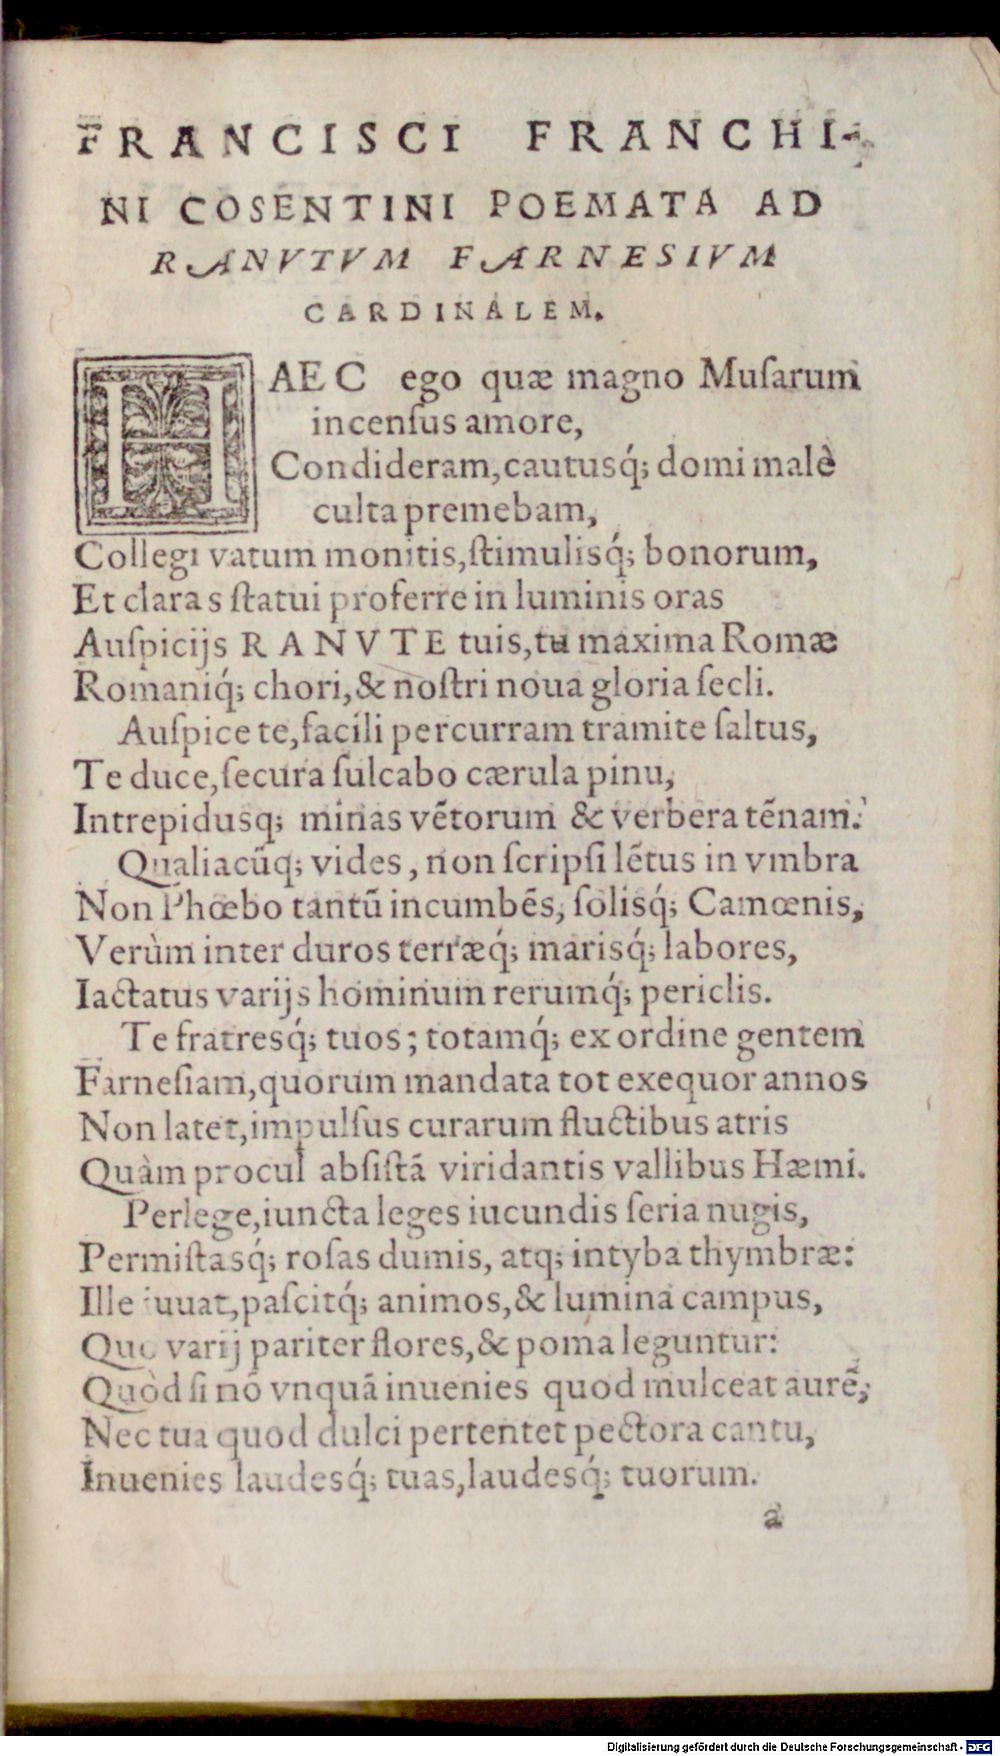 FRANCISCI FRANCHI-
NI COSENTINI POEMATA AD
RANVTVM FARNESIVM
CARDINALEM.
HAEC ego quæ magno Muſarum
incenſus amore,
Condideram, cautusq́; domi malè
culta premebam,
Collegi vatum monitis, ſtimulisq́; bonorum,
Et claras ſtatui proferre in luminis oras
Auſpicijs RANVTE tuis, tu maxima Romæ
Romaniq́; chori, & noſtri noua gloria ſecli.
Auſpice te, facili percurram tramite ſaltus,
Te duce, ſecura ſulcabo cærula pinu,
Intrepidusq; minas vẽtorum & verbera tẽnam.
Qualiacũq; vides, non ſcripſi lẽtus in vmbra
Non Phœbo tantũ incumbẽs, ſolisq́; Camœnis,
Verùm inter duros terræq́; marisq́; labores,
Iactatus varijs hominum rerumq́; periclis.
Te fratresq́; tuos; totamq́; ex ordine gentem
Farneſiam, quorum mandata tot exequor annos
Non latet, impulſus curarum fluctibus atris
Quàm procul abſiſtã viridantis vallibus Hæmi.
Perlege, iuncta leges iucundis ſeria nugis,
Permiſtasq́; roſas dumis, atq; intyba thymbræ:
Ille iuuat, paſcitq́; animos, & lumina campus,
Quo varij pariter flores, & poma leguntur:
Quòd ſi nõ vnquã inuenies quod mulceat aurẽ,
Nec tua quod dulci pertentet pectora cantu,
Inuenies laudesq́; tuas, laudesq́; tuorum.
a
Digitalisierung gefördert durch die Deutsche Forschungsgemeinschaft - DFG